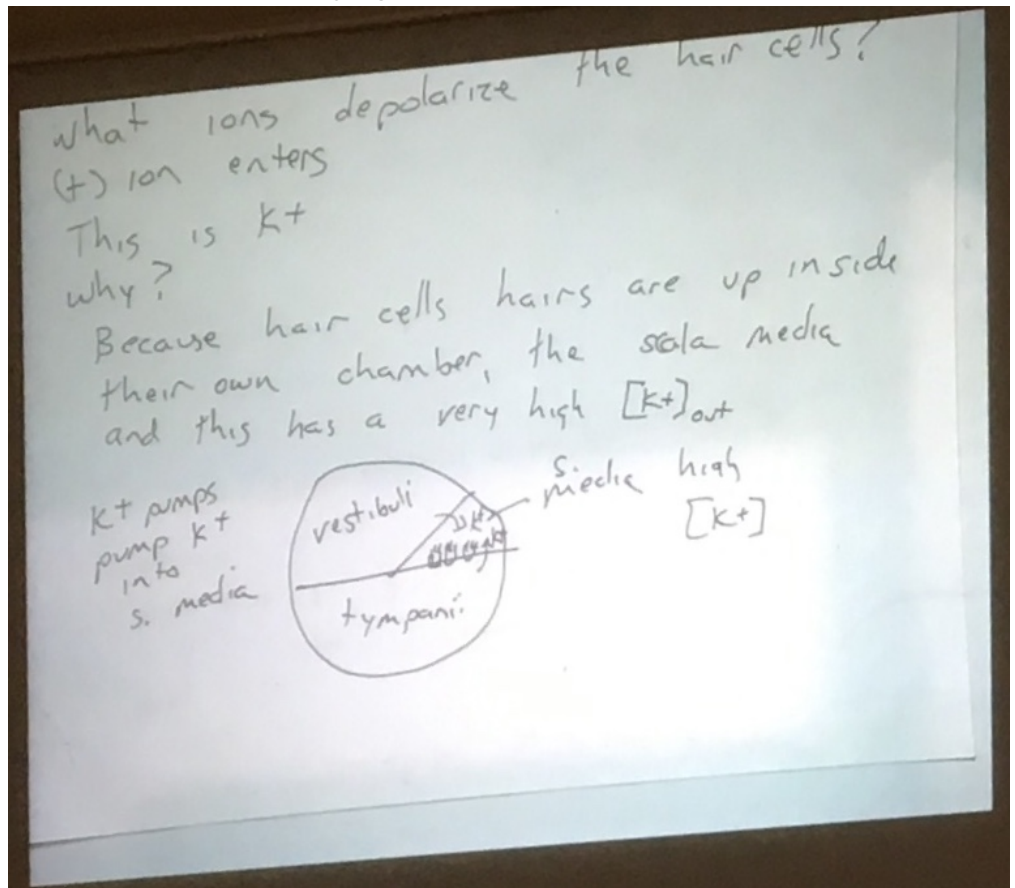 what ions depolarize the hair cells?
(+) ion enters
This is K+
why?
Because hair cells hairs are up inside
their own chamber, the scala media
and this has a very high [K+]out
K+ pumps
pump K+
into
s. media
vestibuli
tympani
s.
media high
[K+]